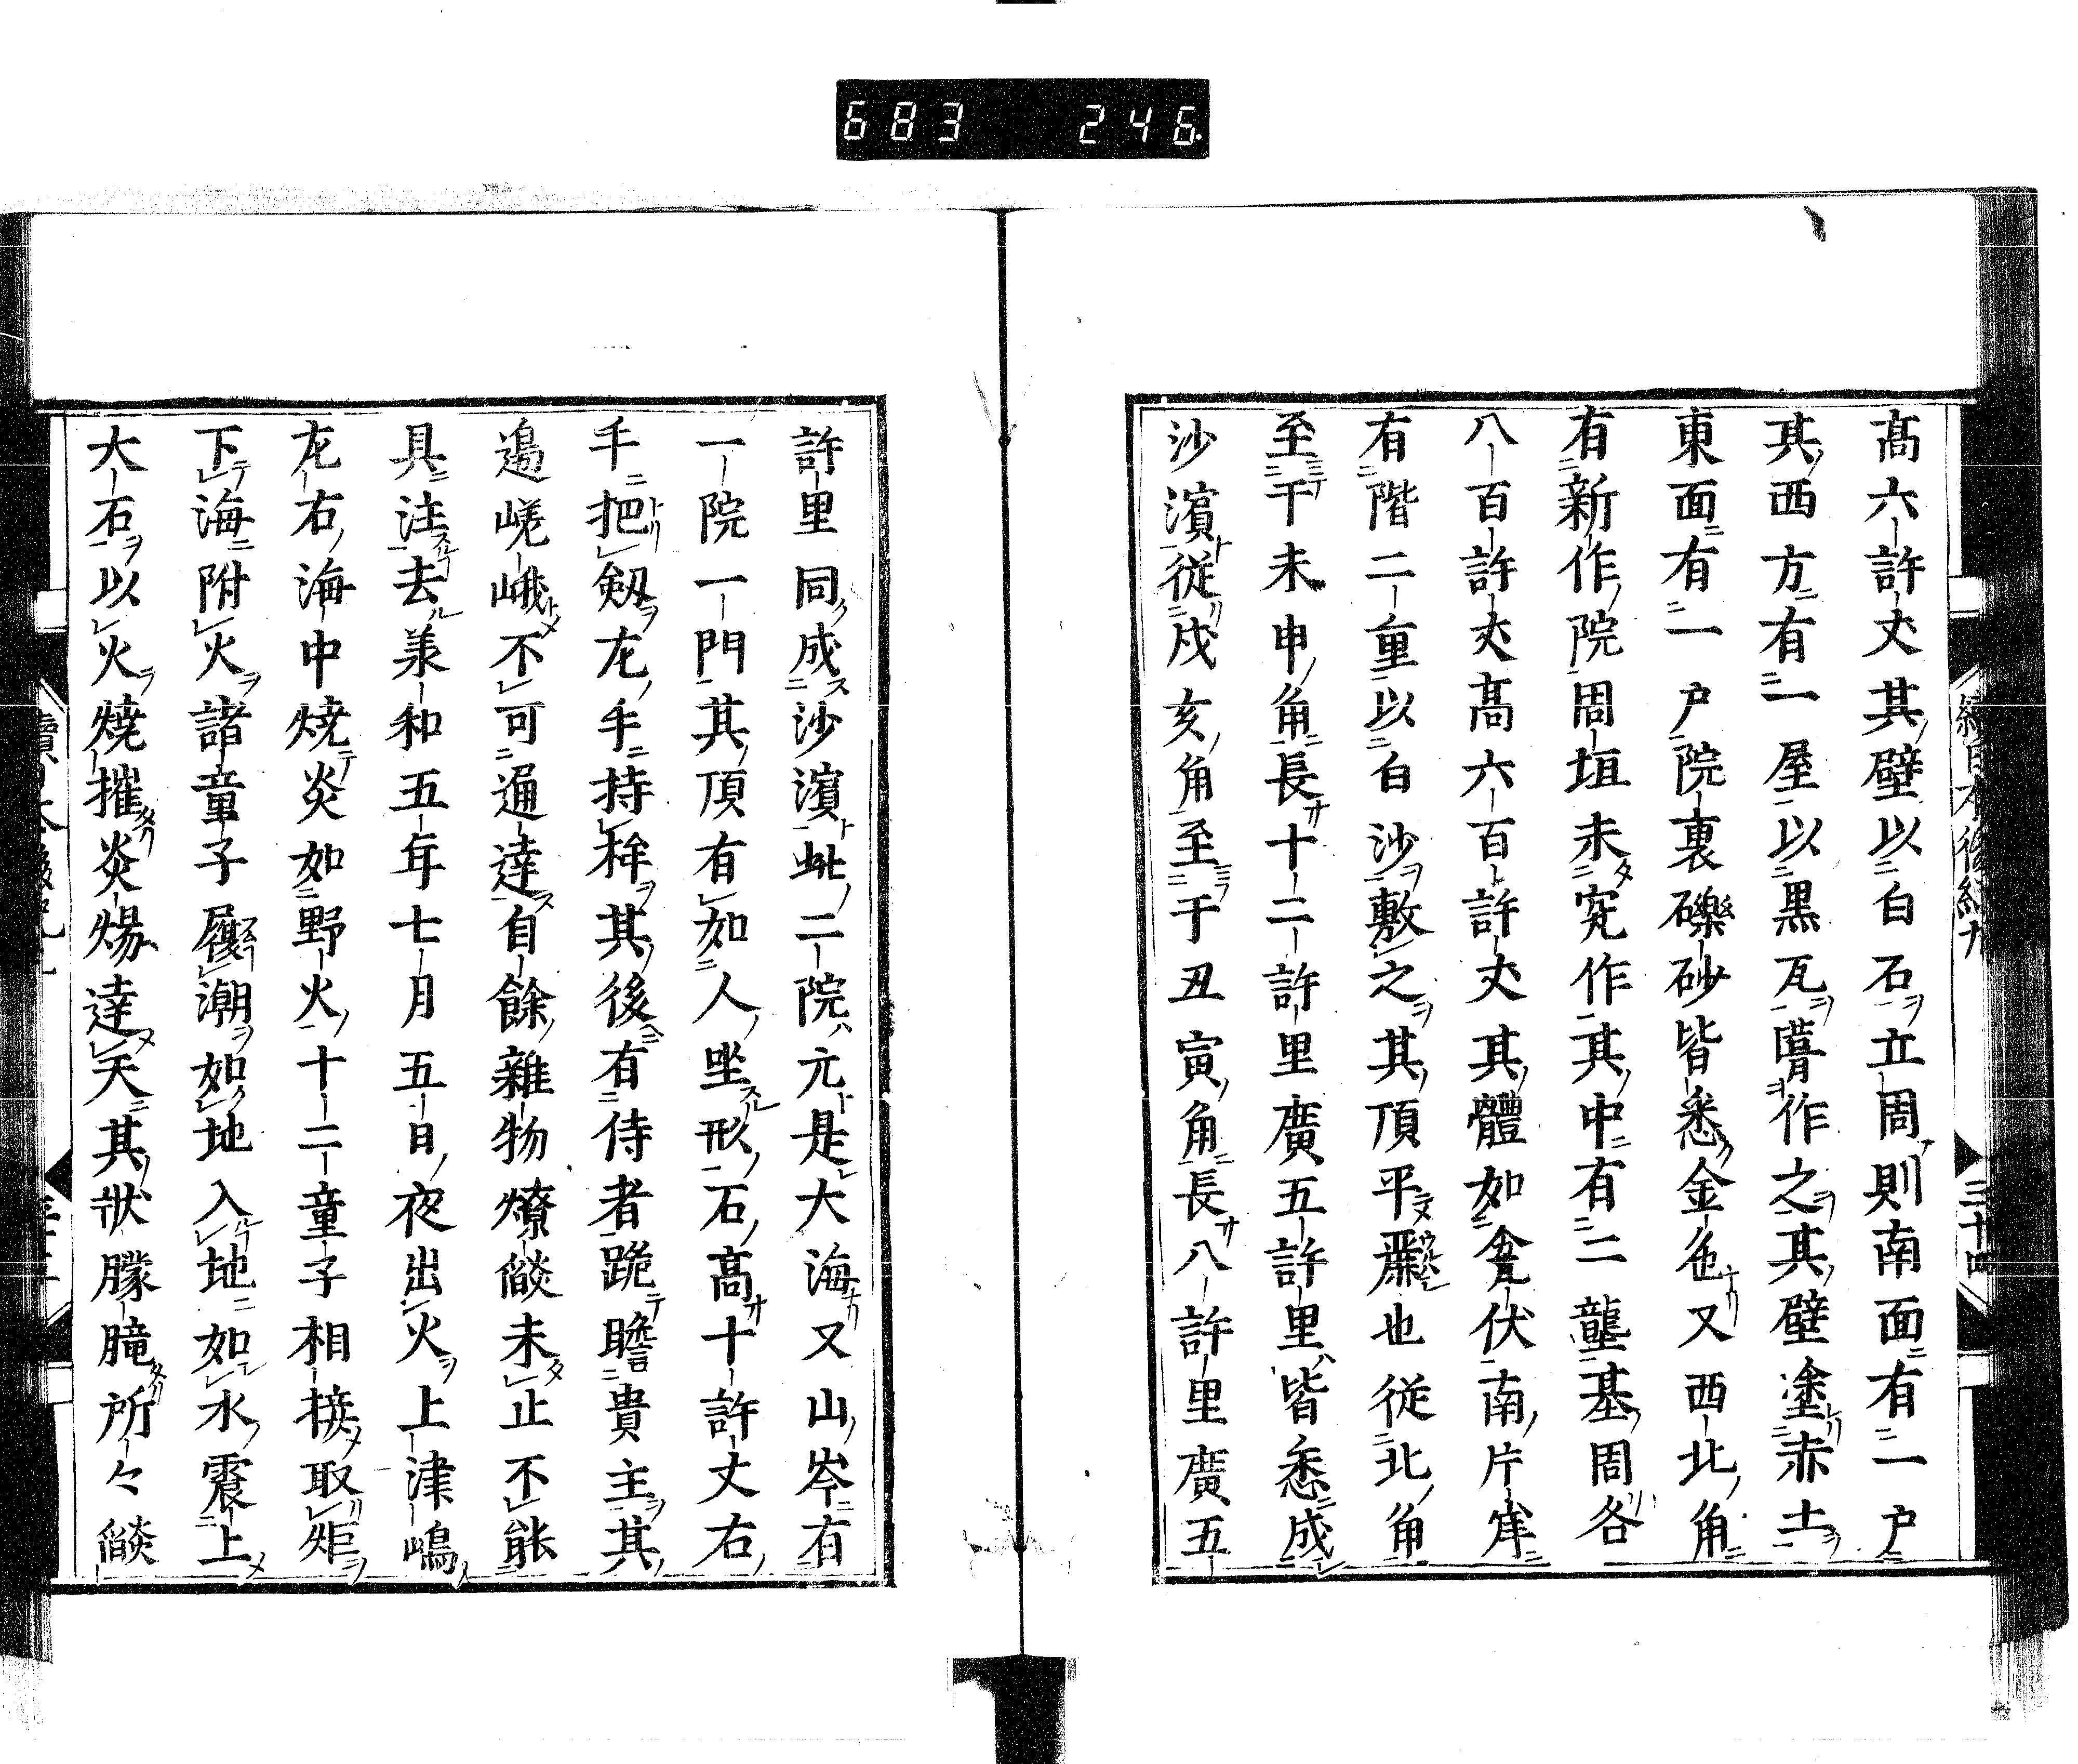 683 246
髙六許丈其壁以白石立周則南面有一戸
其西方有一屋以黒瓦葺作之其壁塗赤土
東面有一戸院裏礫砂皆悉金色又西北角
有新作院周垣未究作其中有二壟基周各
八百許丈髙六百許丈其體如瓮伏南片岸
有階二重以白沙敷之其頂平麗也従北角
至于未申角長十二許里廣五許里皆悉成
沙濵従戌亥角至于丑寅角長八許里廣五
續日本後紀九
三十四
許里同成沙濵此二院元是大海又山岑有
一院一門其頂有如人坐形石髙十許丈右
手把剱左手持桙其後有侍者跪瞻貴主其
邉嵯峨不可通達自餘雜物燎燄未止不能
具注去兼和五年七月五日夜出火上津嶋
左右海中焼炎如野火十二童子相接取炬
下海附火諸童子履潮如地入地如水震上
大石以火燒摧炎煬達天其狀朦朣所々燄